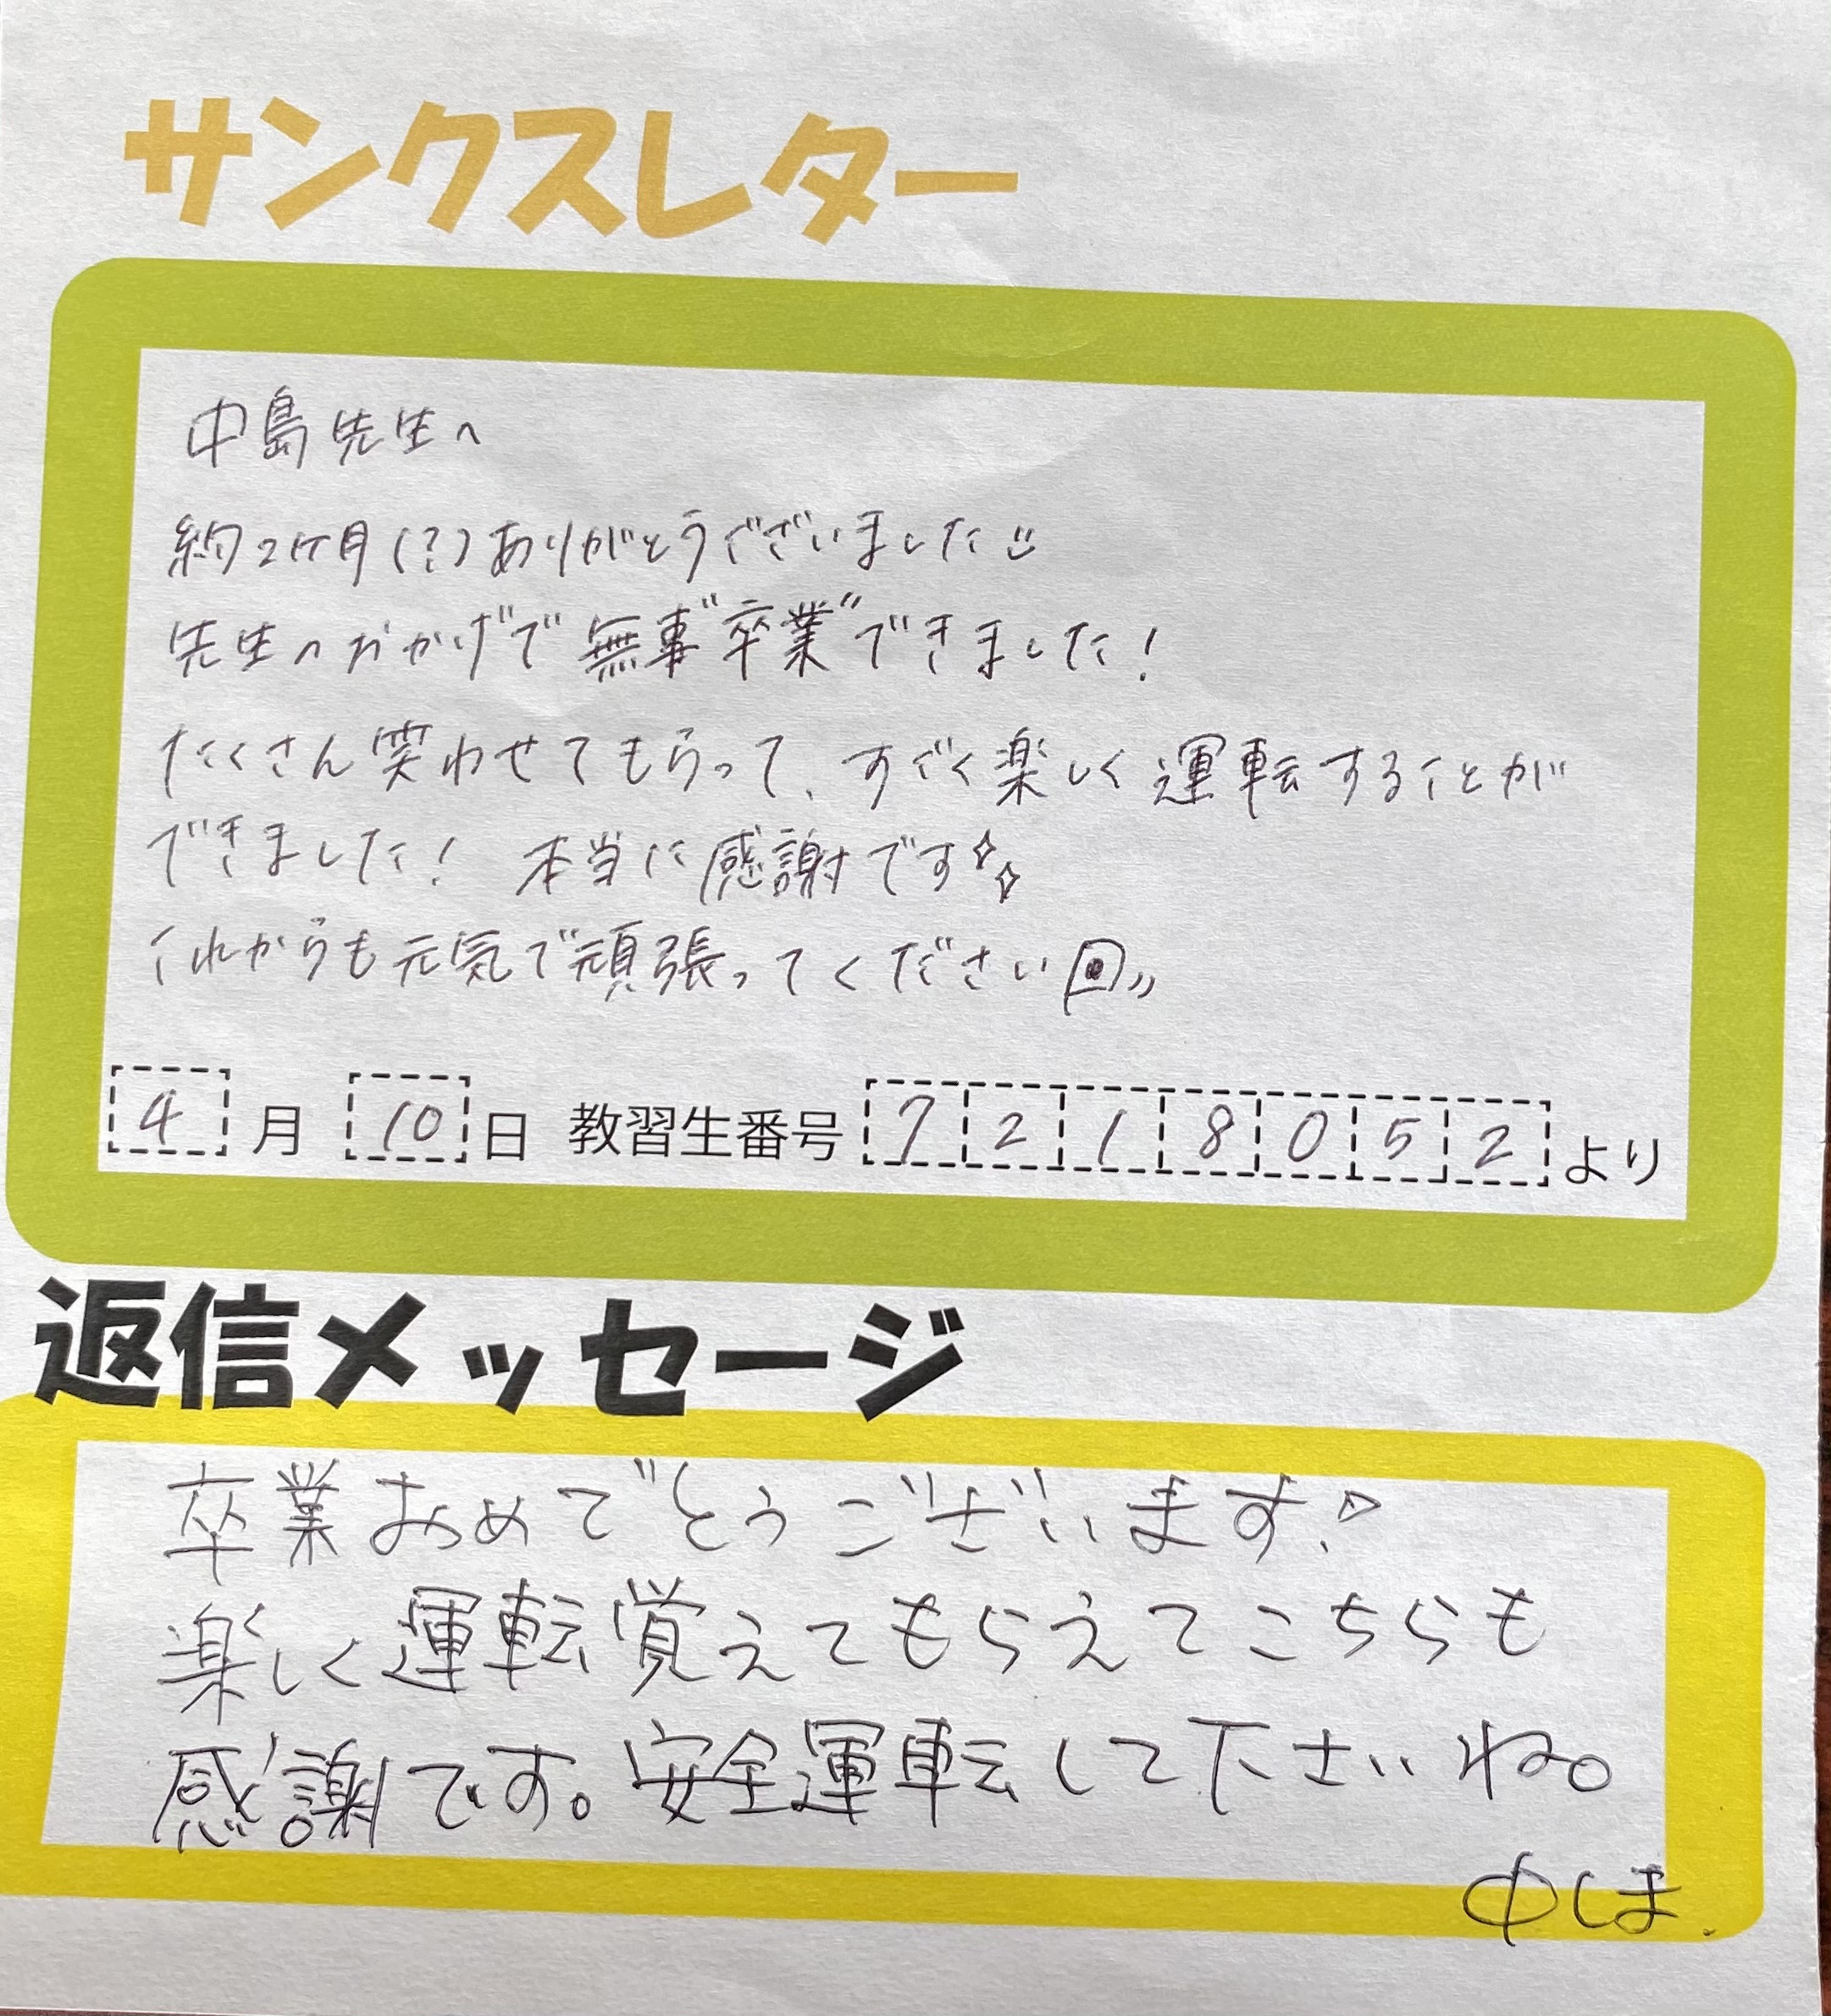 サンクスレター
中島先生へ
約2ヶ月(?)ありがとうございました
先生のおかげで無事"卒業"できました!
たくさん笑わせてもらって、すごく楽しく運転することが
できました! 本当に感謝です
これからも元気で頑張ってください
4月10日 教習生番号 7218052より
返信メッセージ
卒業おめでとうございます!
楽しく運転覚えてもらえてこちらも
感謝です。安全運転して下さいね。
中しま.